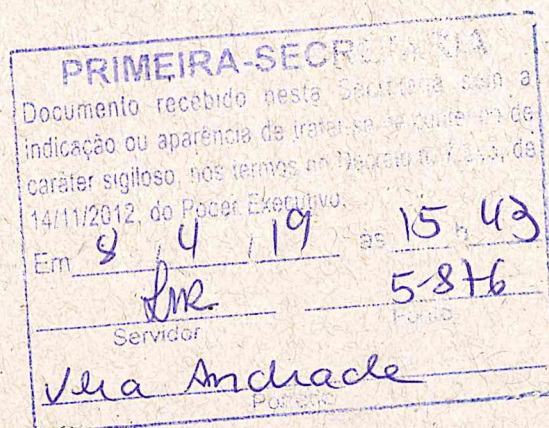 PRIMEIRA-SECRETARIA
Documento recebido nesta Secretaria sem a
indicação ou aparência de tratar-se de conteúdo de
caráter sigiloso, nos termos do Decreto n. de
14/11/2012, do Poder Executivo.
Em 8 / 4 / 19 às 15 h 43
5-876
Servidor Ponto
Vera Andrade
Portador